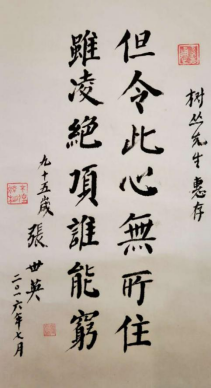 树丛先生惠存
但令此心無所住
雖凌絕頂誰能窮
九十五歲
張世英
二〇一六年七月